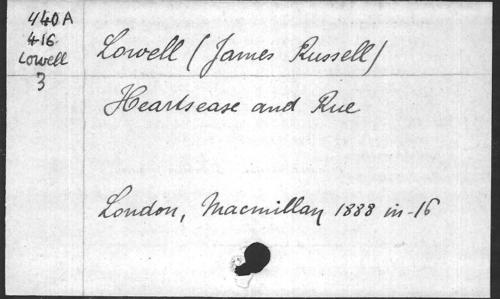 440A
416
Lowell
3
Lowell (James Russell)
Heartsease and Rue
London, Macmillan 1888 in-16